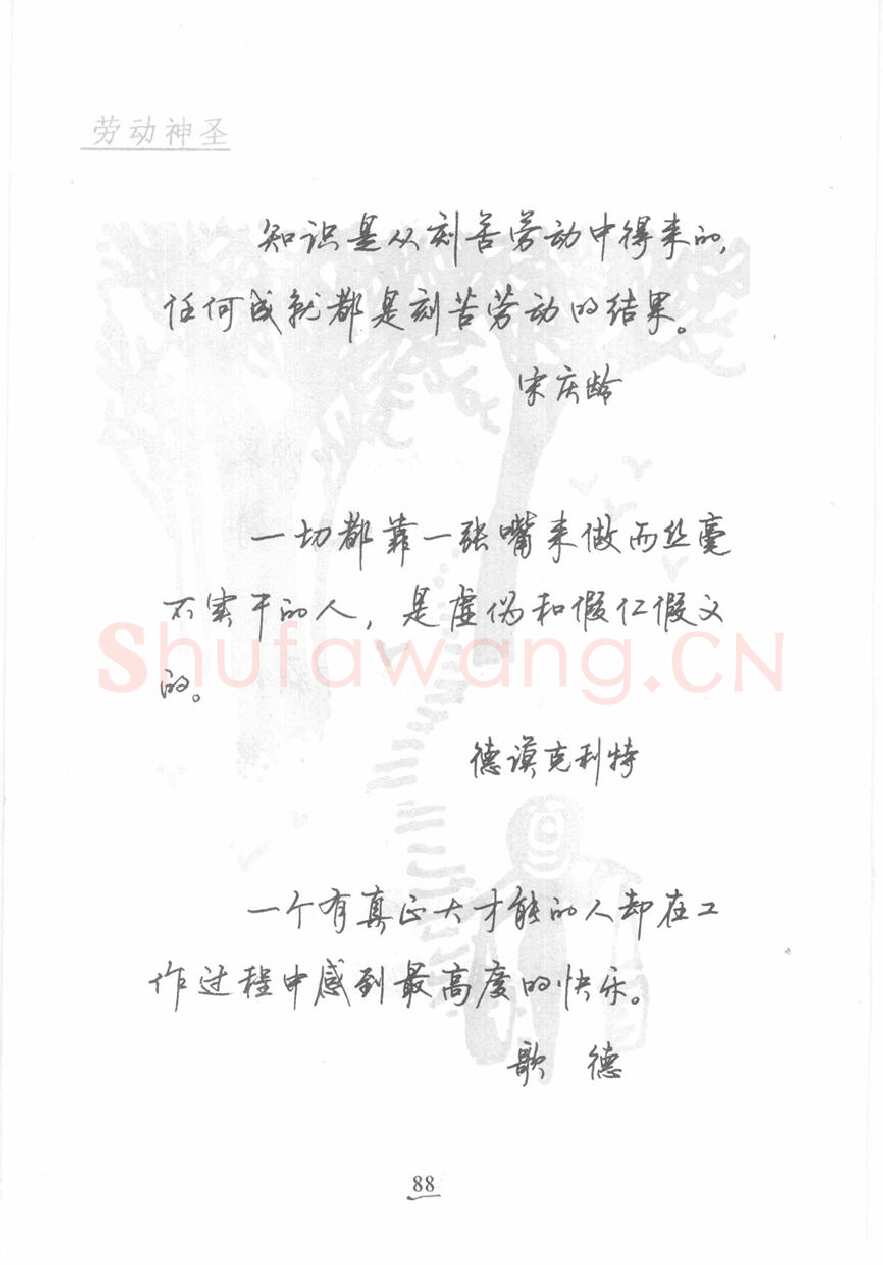 劳动神圣
知识是从刻苦劳动中得来的，
任何成就都是刻苦劳动的结果。
宋庆龄
一切都靠一张嘴来做而丝毫
不实干的人，是虚伪和假仁假义
的。
Shufawang.CN
德谟克利特
一个有真正大才能的人却在工
作过程中感到最高度的快乐。
歌 德
88